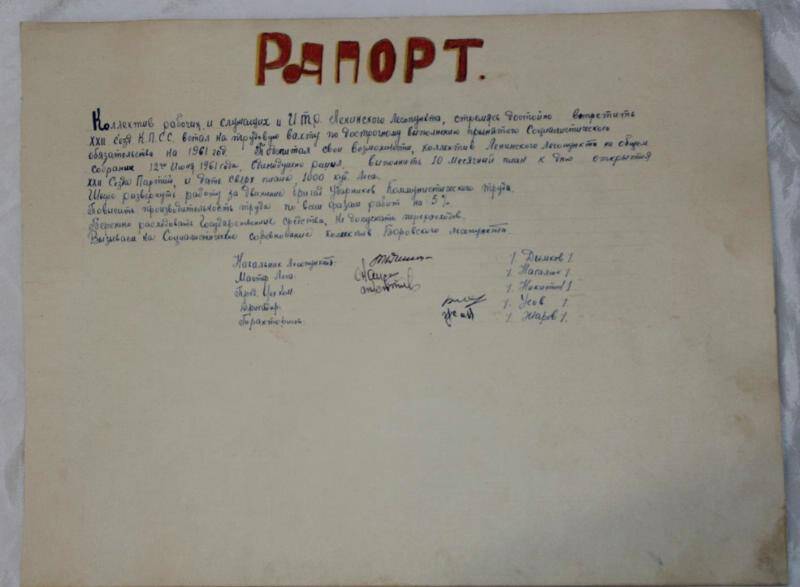 Рапорт.
Коллектив рабочих и служащих и И.Т.Р. Ленинского Лесопункта, стремясь достойно встретить
XXII съезд К.П.СС. встал на трудовую вахту по досрочному выполнению принятого Социалистического
обязательства на 1961 год. Подсчитал свои возможности, коллектив Ленинского лесопункта на общем
собрании 12го Июня 1961 года, Единодушно решил, выполнить 10 месячный план к дню открытия
XXII Съезда Партии, и дать сверх плана 1000 куб. Леса.
Широко развернуть работу за движение бригад Ударников Коммунистического труда.
Повысить производительность труда по всем фазам работ на 5%.
Бережно расходовать Государственные средства, Не допускать перерасходов.
Вызываем на Социалистическое соревнование коллектив Боровского лесопункта.
Начальник Лесопункта: / Дымков /
Мастер Леса:
Пред. Цех Ком
/ Усов /
Тракторист / Жаров /.